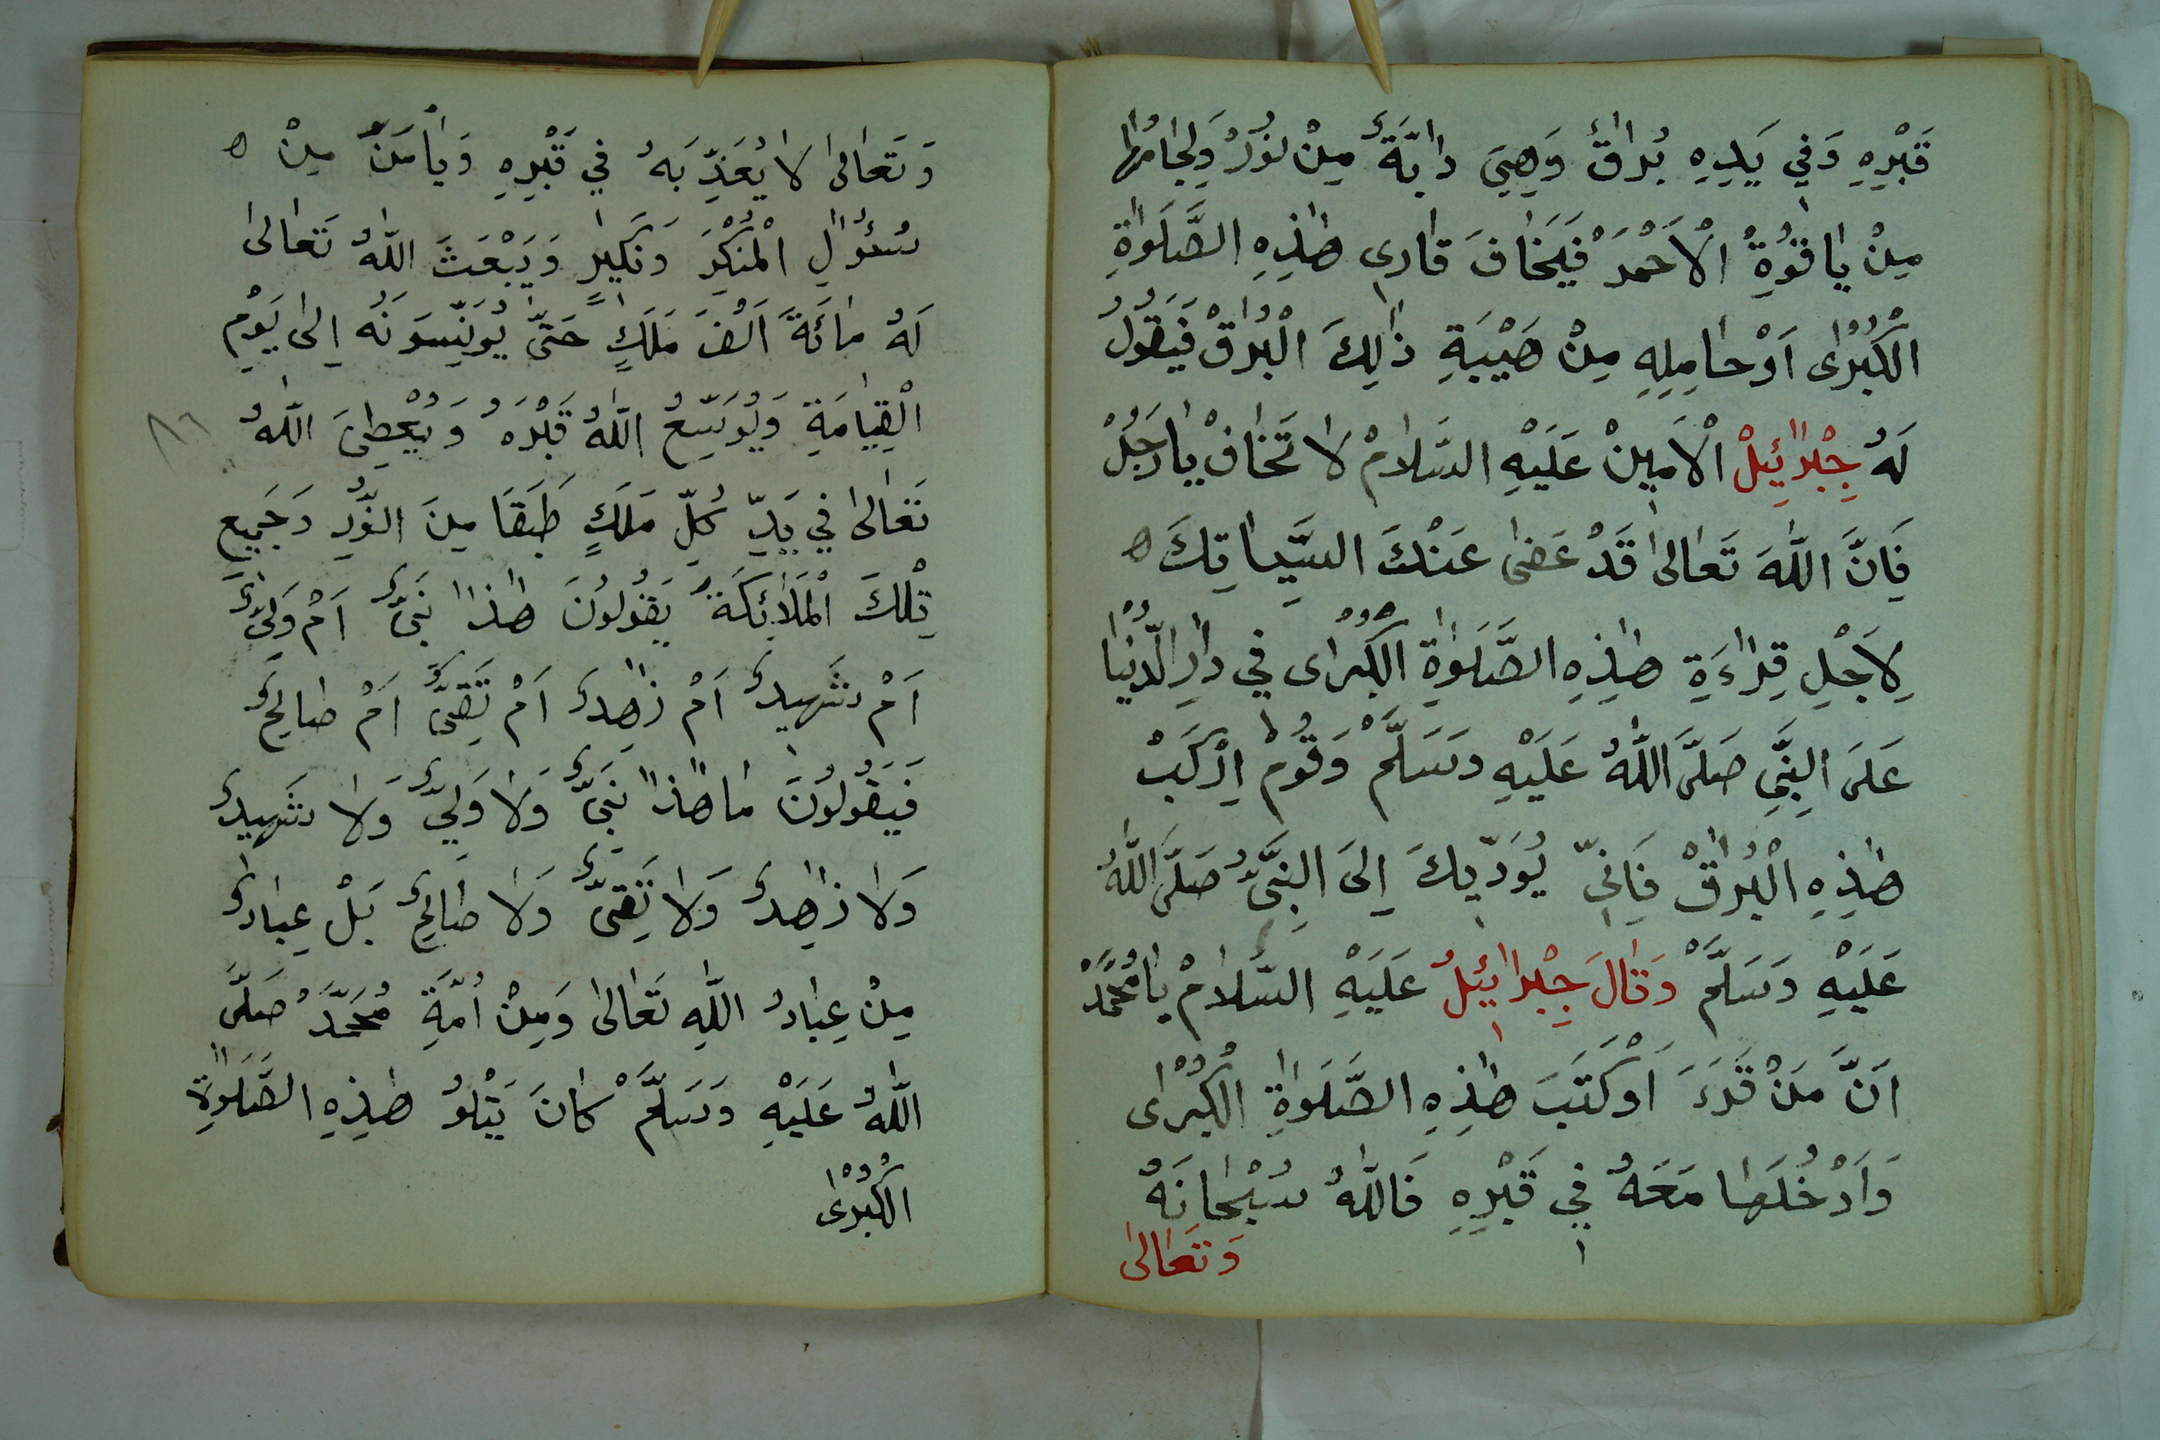 قَبْرِهِ وَفِي يَدِهِ بُرَاقٌ وَهِيَ دَابَّةٌ مِنْ نُورُ وَلِجَامُهَا
مِنْ يَاقُوةِ الْاَحْمَرَ فَيَخَافَ قَارِى هٰذِهِ الصَّلَوٰةِ
الْكُبْرٰى اَوْحَامِلِهِ مِنْ هَيْبَةِ ذٰلِكَ الْبُرٰقْ فَيَقُولُ
لَهُ جِبْرَائِيلْ الْاَمِينْ عَلَيْهِ السَّلَامْ لَا تَخَافْ يَارَجُلْ
فَاِنَّ اللّٰهَ تَعَالىٰ قَدْ عَفٰى عَنْكَ السَّيِّاٰتِكَ ه
لِاَجْلِ قِرَاءَةِ هٰذِهِ الصَّلَوٰةِ الْكُبْرَاى فِي دَارِ الدُّنْيَا
عَلَى النَّبِيِّ صَلَّى اللّٰهُ عَلَيْهِ وَسَلَّمْ وَقُومْ اِرْكَبْ
هٰذِهِ الْبُرٰقْ فَاِنِّي يُوَدِّيكَ اِلَى النَّبِىُّ صَلَّى اللّٰهُ
عَلَيْهِ وَسَلَّمْ وَقَالَ جِبْرَائِيلُ عَلَيْهِ السَّلَامْ يَامُحَمَّدْ
اَنَّ مَنْ قَرَءَ اَوْكَتَبَ هٰذِهِ الصَّلَوٰةِ الْكُبْرٰى
وَاَدْخُلَهَا مَعَهُ فِي قَبْرِهِ فَاللّٰهُ سُبْحَانَهُ
وَتَعَالىٰ
وَتَعَالىٰ لَا يُعَذِّبَهُ فِي قَبْرِهِ وَيَأْمَنُ مِنْ ه
سُئُوَالِ الْمُنْكَرَ وَنَكِيرٍ وَيَبْعَثَ اللّٰهُ تَعَالىٰ
لَهُ مَائَةَ اَلْفَ مَلَكٍ حَتَّى يُوَنِّسَونَهُ اِلىٰ يَوْمِ
الْقِيَامَةِ وَيُوَسِّعُ اللّٰهُ قَبْرَهُ وَيُعْطِىَ اللّٰهُ
٨٦
تَعَالىٰ فِي يَدِّ كُلِّ مَلَكٍ طَبَقَا مِنَ النُّورِ وَجَمِيع
تِلْكَ الْمَلَائِكَةُ يَقُولُونَ هٰذَا نَبِىٌّ اَمْ وَلِىٌّ
اَمْ شَهِيدٌ اَمْ زَاهِدٌ اَمْ تَقِىٌّ اَمْ صَالِحٌ
فَيَقُولُونَ مَا هٰذَا نَبِىٌّ وَلَا وَلِىٌّ وَلَا شَهِيدٌ
وَلَا زَاهِدٌ وَلَا تَقِىٌّ وَلَا صَالِحٌ بَلْ عِبَادٌ
مِنْ عِبَادُ اللّٰهِ تَعَالىٰ وَمِنْ اُمَّةِ مُحَمَّدْ صَلَّى
اللّٰهُ عَلَيْهِ وَسَلَّمْ كَانَ يَتْلُو هٰذِهِ الصَّلَوٰةِ
الْكُبْرٰى